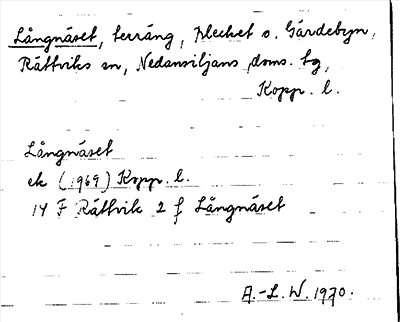 Långnäset, terräng, Plecket o. Gärdebyn,
Rättviks sn, Nedansiljans doms. tg,
Kopp. l.
Långnäset
ek (1969) Kopp. l.
14 F Rättvik 2 f Långnäset
A.-L. W. 1970.